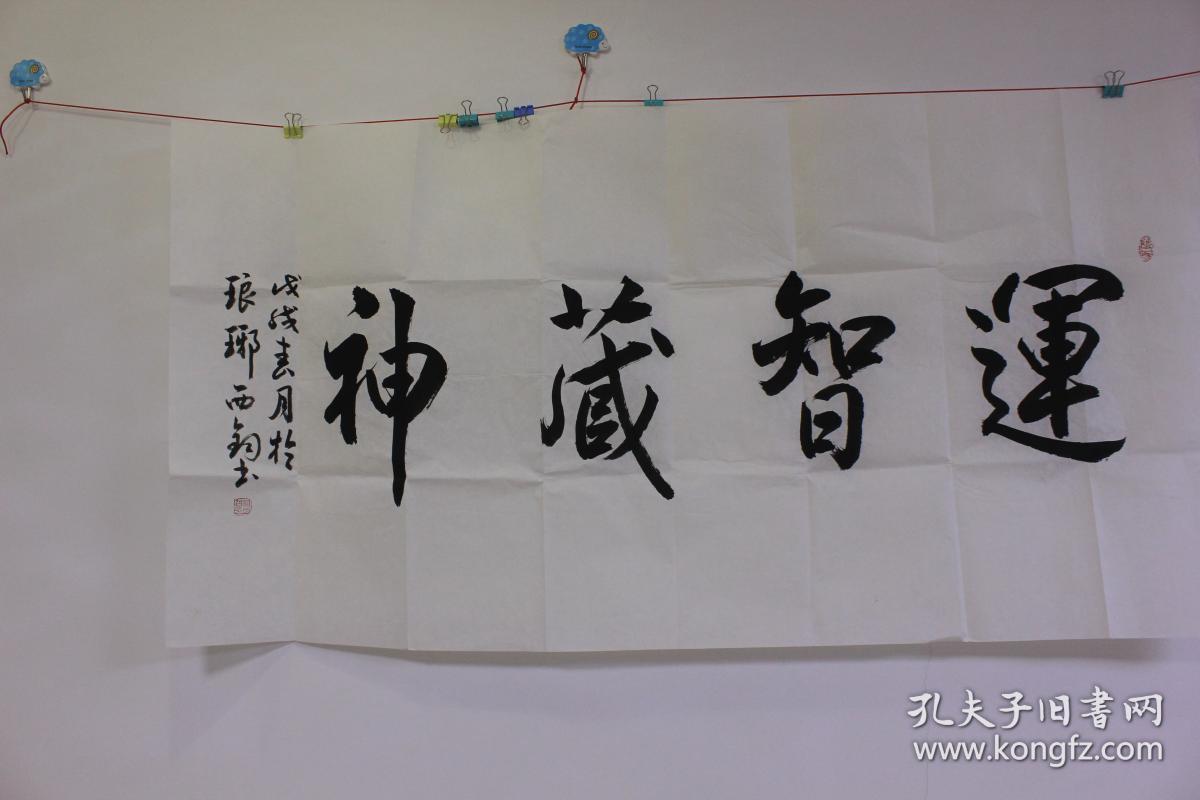 運智藏神
戊戌春月於
琅琊西鈞书
孔夫子旧書网
www.kongfz.com